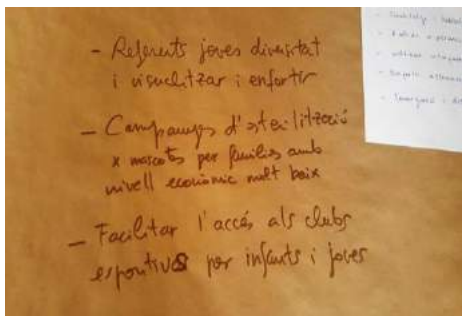 - Referents joves diversitat
i visuclitzar i enfortir
- Campanyes d'esterilització
x mascotes per famílies amb
nivell econòmic molt baix
- Facilitar l'accés als clubs
esportius per infants i joves